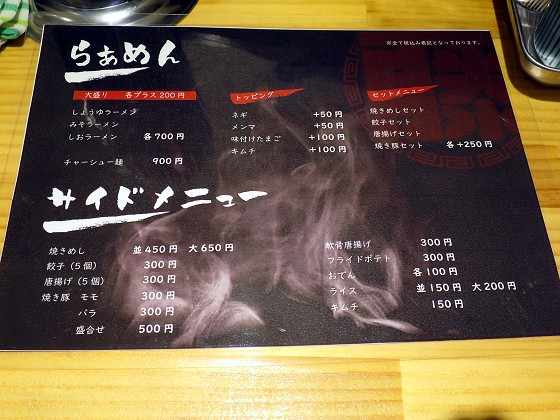 らぁめん
※全て税込み表記となっております。
大盛り 各プラス200円
しょうゆラーメン
みそラーメン
しおラーメン 各700円
チャーシュー麺 900円
トッピング
ネギ +50円
メンマ +50円
味付けたまご +100円
キムチ +100円
セットメニュー
焼きめしセット
餃子セット
唐揚げセット
焼き豚セット 各+250円
サイドメニュー
焼きめし 並450円 大650円
餃子(5個) 300円
唐揚げ(5個) 300円
焼き豚 モモ 300円
バラ 300円
盛合せ 500円
軟骨唐揚げ 300円
フライドポテト 300円
おでん 各100円
ライス 並150円 大200円
キムチ 150円